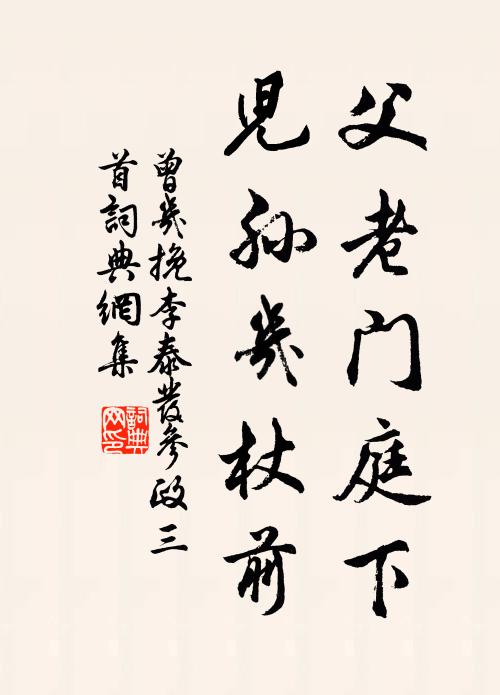 父老門庭下
兒孫幾杖前
曾幾挽李泰發參政三
首詞典網集
詞典
网印